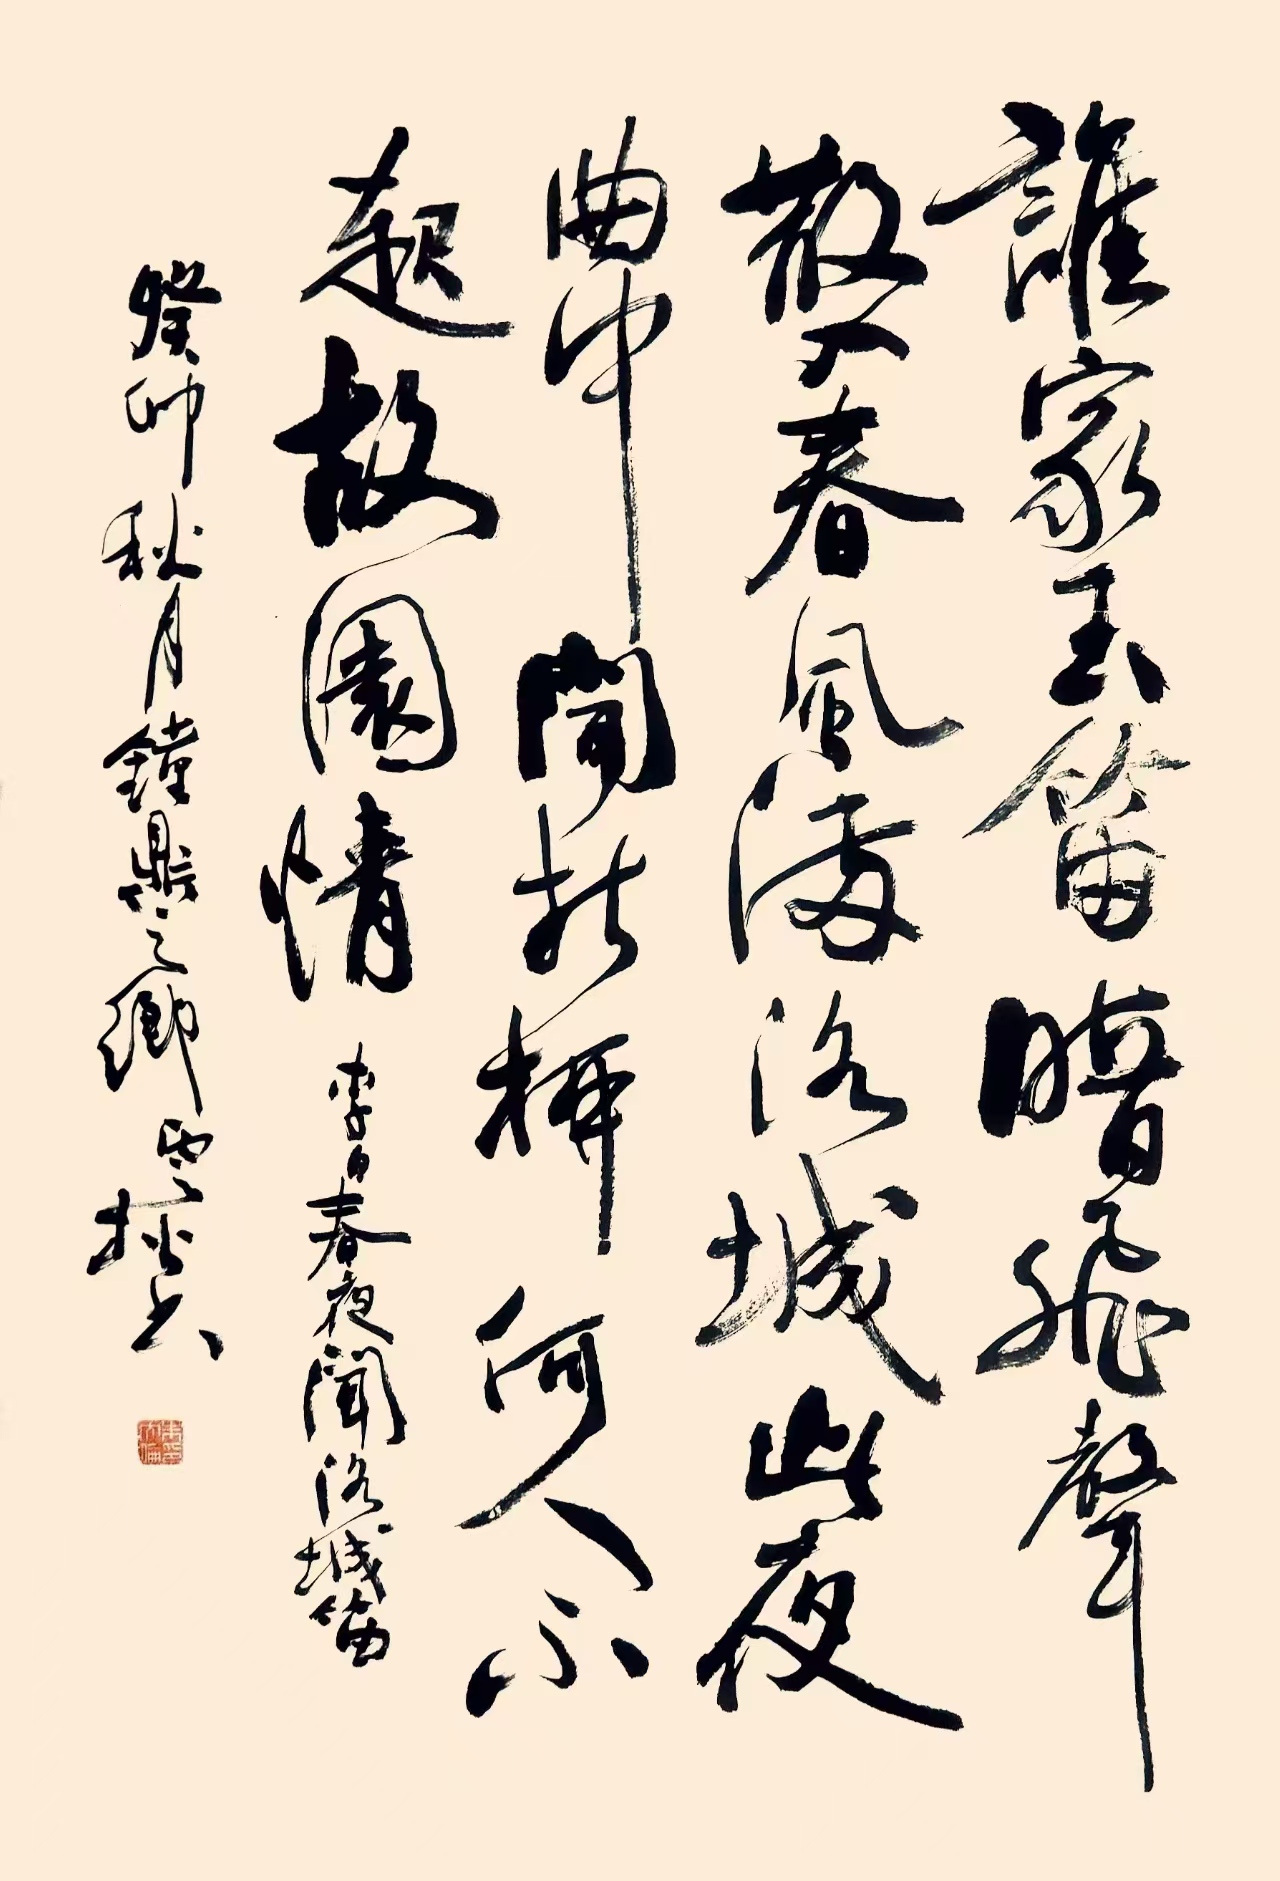 誰家玉笛暗飛聲
散入春風滿洛城此夜
曲中聞折柳何人不
起故園情 李白春夜聞洛城笛
癸卯秋月鐘鼎之鄉雲書